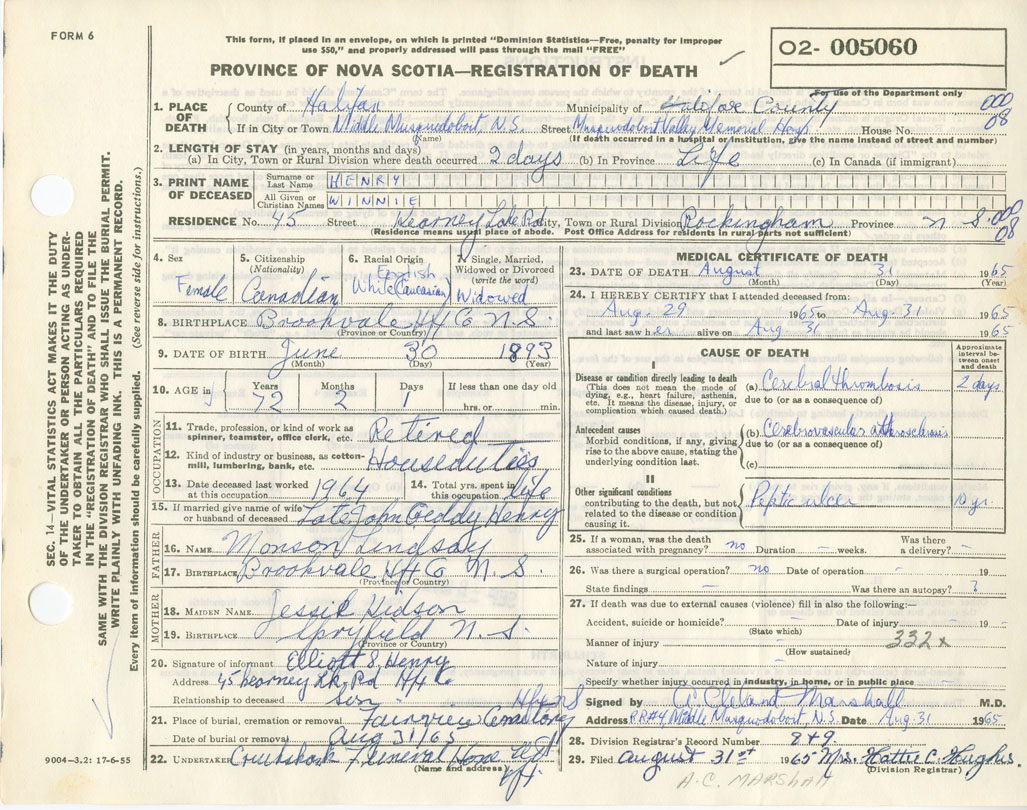 FORM 6
This form, if placed in an envelope, on which is printed "Dominion Statistics—Free, penalty for improper
use $50," and properly addressed will pass through the mail "FREE"
PROVINCE OF NOVA SCOTIA—REGISTRATION OF DEATH
02- 005060
For use of the Department only
000
08
1. PLACE OF DEATH { County of Halifax Municipality of Halifax County
If in City or Town Middle Musquodoboit, N.S. Street Musquodoboit Valley Memorial Hosp. House No.
(Name) (If death occurred in a hospital or institution, give the name instead of street and number)
2. LENGTH OF STAY (in years, months and days)
(a) In City, Town or Rural Division where death occurred 2 days (b) In Province Life (c) In Canada (if immigrant)
3. PRINT NAME OF DECEASED { Surname or Last Name HENRY
All Given or Christian Names WINNIE
RESIDENCE No. 45 Street Kearney Lake Rd City, Town or Rural Division Rockingham Province N S 000
08
(Residence means usual place of abode. Post Office Address for residents in rural parts not sufficient)
4. Sex Female
5. Citizenship (Nationality) Canadian
6. Racial Origin English White (Caucasian)
7. Single, Married, Widowed or Divorced (write the word) Widowed
8. BIRTHPLACE Brookvale Hfx Co N.S.
(Province or Country)
9. DATE OF BIRTH June 30 1893
(Month) (Day) (Year)
10. AGE in { Years Months Days If less than one day old
72 2 1 hrs. or min.
OCCUPATION
11. Trade, profession, or kind of work as spinner, teamster, office clerk, etc. Retired
12. Kind of industry or business, as cotton-mill, lumbering, bank, etc. Houseduties
13. Date deceased last worked at this occupation 1964 14. Total yrs. spent in this occupation life
15. If married give name of wife or husband of deceased Late John Geddy Henry
FATHER
16. NAME Monson Lindsay
17. BIRTHPLACE Brookvale Hfx Co N.S.
(Province or Country)
MOTHER
18. MAIDEN NAME Jessie Hidson
19. BIRTHPLACE Spryfield N.S.
(Province or Country)
20. Signature of informant Elliott S. Henry
Address 45 Kearney Lk Rd Hfx Co
Relationship to deceased son Hfx N S
21. Place of burial, cremation or removal Fairview Cemetery
Date of burial or removal Aug 31/65
22. UNDERTAKER Cruikshank Funeral Home
(Name and address) Hfx
MEDICAL CERTIFICATE OF DEATH
23. DATE OF DEATH August 31 1965
(Month) (Day) (Year)
24. I HEREBY CERTIFY that I attended deceased from:
Aug. 29 1965 to Aug. 31 1965
and last saw her alive on Aug 31 1965
CAUSE OF DEATH
Approximate interval between onset and death
I
Disease or condition directly leading to death
(This does not mean the mode of dying, e.g., heart failure, asthenia, etc. It means the disease, injury, or complication which caused death.)
(a) Cerebral thrombosis 2 days
due to (or as a consequence of)
Antecedent causes
Morbid conditions, if any, giving rise to the above cause, stating the underlying condition last.
(b) Cerebrovascular atherosclerosis
due to (or as a consequence of)
(c)
II
Other significant conditions
contributing to the death, but not related to the disease or condition causing it.
Peptic ulcer 10 yr.
25. If a woman, was the death associated with pregnancy? no Duration — weeks. Was there a delivery? —
26. Was there a surgical operation? no Date of operation - 19
State findings — Was there an autopsy?
27. If death was due to external causes (violence) fill in also the following:—
Accident, suicide or homicide? — Date of injury — 19
(State which)
Manner of injury — 332x
(How sustained)
Nature of injury —
Specify whether injury occurred in industry, in home, or in public place —
Signed by A. Cleland Marshall M.D.
Address RR#4 Middle Musquodoboit, N.S. Date Aug 31 1965
28. Division Registrar's Record Number 879
29. Filed August 31st 1965 Mrs. Hattie C. Hughes.
(Division Registrar)
A.C. MARSHAM
9004—3.2: 17-6-55
SEC. 14—VITAL STATISTICS ACT MAKES IT THE DUTY
OF THE UNDERTAKER OR PERSON ACTING AS UNDER-
TAKER TO OBTAIN ALL THE PARTICULARS REQUIRED
IN THE "REGISTRATION OF DEATH" AND TO FILE THE
SAME WITH THE DIVISION REGISTRAR WHO SHALL ISSUE THE BURIAL PERMIT.
WRITE PLAINLY WITH UNFADING INK. THIS IS A PERMANENT RECORD.
Every item of information should be carefully supplied. (See reverse side for instructions.)